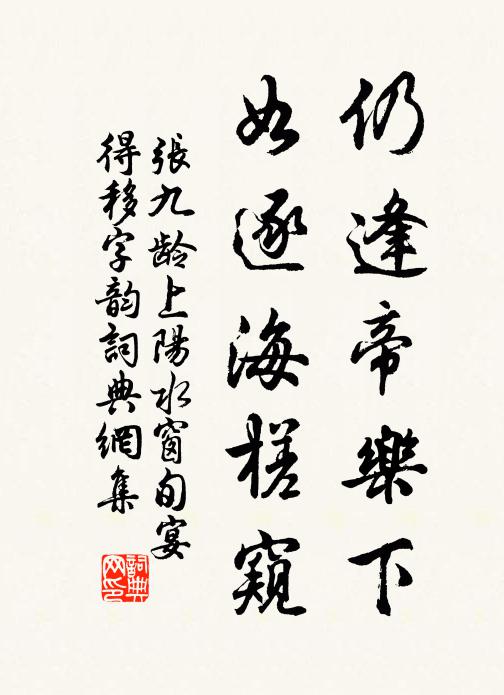 仍逢帝樂下
如逐海槎窺
張九龄上陽水窗旬宴
得移字韵詞典網集
詞典网印